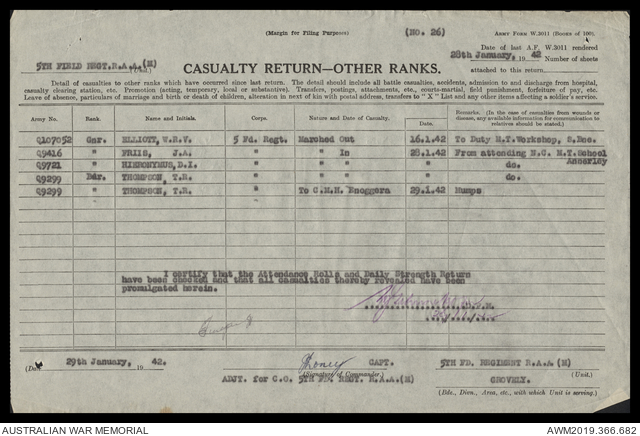 (Margin for Filing Purposes)
(NO. 26)
ARMY FORM W.3011 (BOOKS OF 100).
Date of last A.F. W.3011 rendered
28th January, 19 42 Number of sheets
attached to this return
5TH FIELD REGT.R.A.A.(M)
(Unit.)
CASUALTY RETURN—OTHER RANKS.
Detail of casualties to other ranks which have occurred since last return. The detail should include all battle casualties, accidents, admission to and discharge from hospital,
casualty clearing station, etc. Promotion (acting, temporary, local or substantive). Transfers, postings, attachments, etc., courts-martial, field punishment, forfeiture of pay, etc.
Leave of absence, particulars of marriage and birth or death of children, alteration in next of kin with postal address, transfers to "X" List and any other items affecting a soldier's service.
Army No. Rank. Name and Initials. Corps. Nature and Date of Casualty. Date. Remarks. (In the case of casualties from wounds or diseases, any available information for communication to relatives should be stated.)
Q107052 Gnr. ELLIOTT, W.R.V. 5 Fd. Regt. Marched Out 16.1.42 To Duty M.T.Workshop, S.Bne.
Q9416 " FRIIS, J.A. " " In 28.1.42 From attending N.C. M.T.School Annerley
Q9721 " HIERONYMUS, D.I. " " " " do.
Q9299 Bdr. THOMPSON, T.R. " " " " do.
Q9299 " THOMPSON, T.R. " To C.M.H. Enoggera 29.1.42 Mumps
I certify that the Attendance Rolls and Daily Strength Return
have been checked and that all casualties thereby revealed have been
promulgated herein.
(Date 29th January, 19 42.
CAPT.
(Signature of Commander.)
ADJT. for C.O. 5TH FD. REGT. R.A.A.(M)
5TH FD. REGIMENT R.A.A (M)
(Unit.)
GROVELY.
(Bde., Divn., Area, etc., with which Unit is serving.)
AUSTRALIAN WAR MEMORIAL
AWM2019.366.682